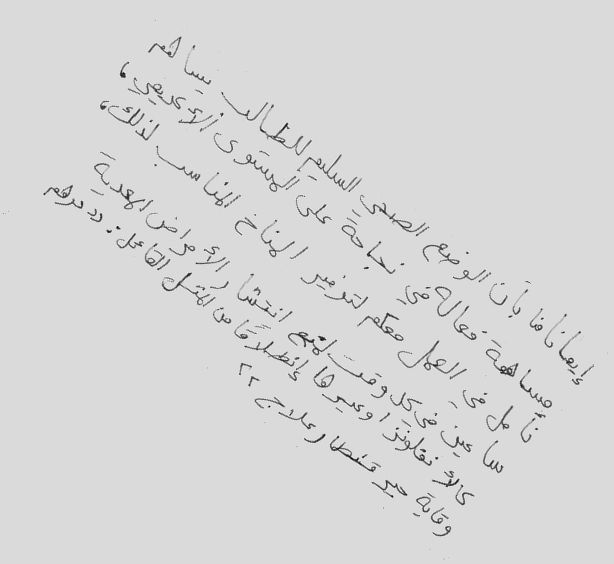 إيمانا منا بأن الوضع الصحي السليم للطالب يساهم
مساهمة فعالة في نجاحة على المستوى الأكاديمي،
نأمل في العمل معكم لتوفير المناخ المناسب لذلك،
ساعين في كل وقت لمنع انتشار الأمراض المعدية
كالأنفلونزا وغيرها إنطلاقا من المثل القائل: ((درهم
وقاية خير قنطار علاج))